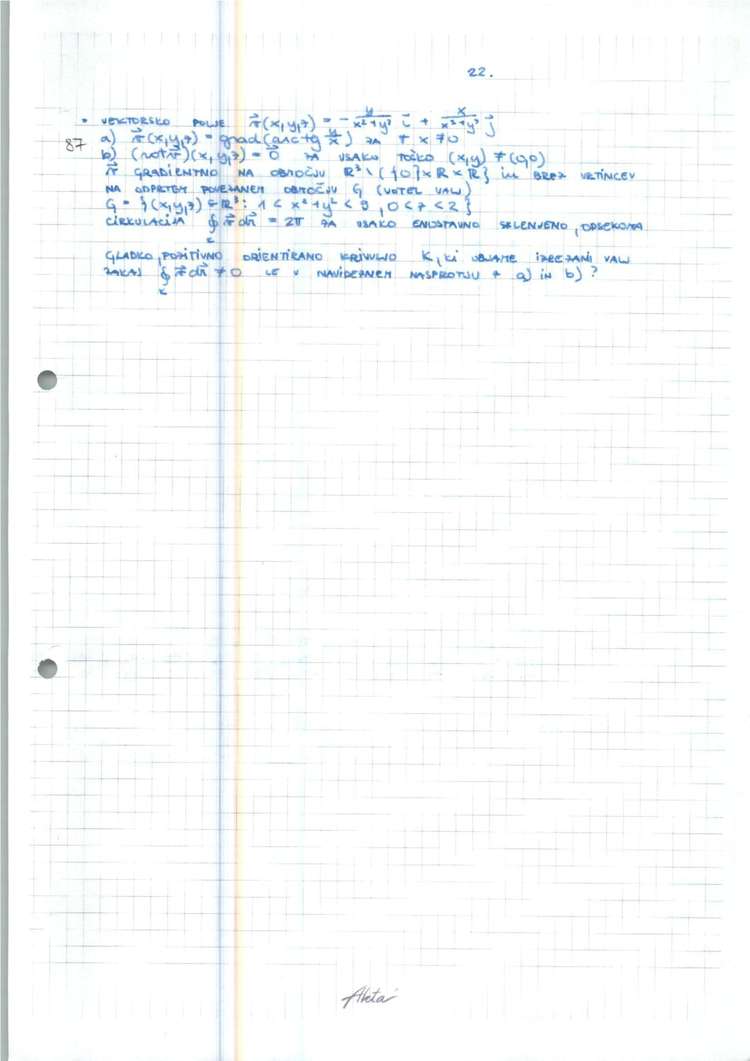 22.
• VEKTORSKO POLJE \vec{v}(x,y,z) = -\frac{y}{x²+y²} \vec{i} + \frac{x}{x²+y²} \vec{j}
87 a) \vec{v}(x,y,z) = grad(arctg \frac{y}{x}) ZA ∀ x ≠ 0
b) (rot\vec{v})(x,y,z) = \vec{0} ZA VSAKO TOČKO (x,y) ≠ (0,0)
\vec{v} GRADIENTNO NA OBMOČJU ℝ³ \ {{0}×ℝ×ℝ} in BREZ VRTINCEV
NA ODPRTEM POVEZANEM OBMOČJU G (VOTEL VALJ)
G = {(x,y,z) ∈ ℝ³: 1 < x²+y² < 9, 0<z<2}
CIRKULACIJA ∮_K \vec{v} d\vec{r} = 2π ZA VSAKO ENOSTAVNO SKLENJENO, ODSEKOMA
GLADKO, POZITIVNO ORIENTIRANO KRIVULJO K, KI OBJAME IZREZANI VALJ
ZAKAJ ∮_K \vec{v} d\vec{r} ≠ 0 LE V NAVIDEZNEM NASPROTJU Z a) IN b) ?